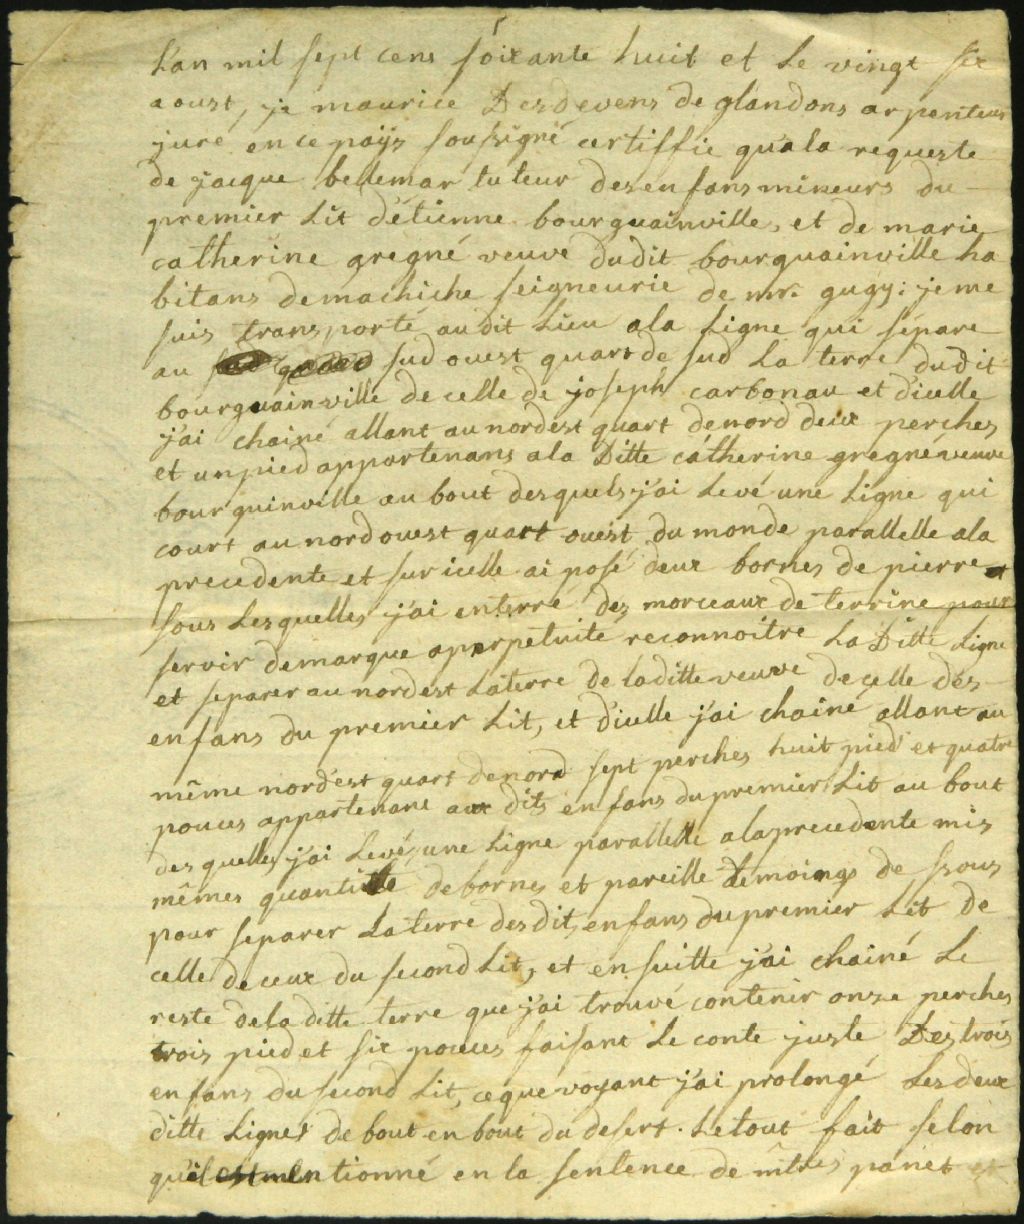 L'an mil sept cens soixante huit et le vingt six
aoust, je maurice Desdevens de glandons arpenteur
juré en ce paÿs soussigné certiffie qu'a la requeste
de jacque bellemar tuteur des enfans mineurs du
premier Lit d'étienne bourguainville, et de marie
catherine gregné veuve dudit bourguainville ha
bitans demachiche seigneurie de mr. gugy: je me
suis transporté audit Lieu a la Ligne qui sépare
au sud ouest quart de sud La terre dudit
bourguainville de celle de joseph carbonau et d'icelle
j'ai chainé allant au nordest quart denord deux perches
et un pied appartenans a la Ditte catherine gregné veuve
bourguinville au bout desquels j'ai Levé une Ligne qui
court au nord ouest quart ouest du monde parallelle a la
precedente et sur icelle ai posé deux bornes de pierre
sous Lesquelles j'ai enterré des morceaux de terrine pour
servir demarque aperpetuité reconnoitre La Ditte Ligne
et separer au nordest La terre de laditte veuve de celle des
enfans du premier Lit, et d'icelle j'ai chainé allant au
même nordest quart denord sept perches huit pied et quatre
pouces appartenant aux dits enfans du premier Lit au bout
desquelles j'ai Levé une Ligne parallelle a la precedente mis
mêmes quantitté debornes et pareille temoings de ssous
pour separer La terre desdits enfans du premier Lit de
celle deceux du second Lit, et ensuitte j'ai chainé Le
reste dela ditte terre que j'ai trouvé contenir onze perches
trois pied et six pouces faisant Le conte juste Des trois
enfans du second Lit, ce que voyant j'ai prolongé Les deux
ditte Lignes de bout en bout du desert. Le tout fait selon
qu'il est mentionné en la sentence de mtres panet et